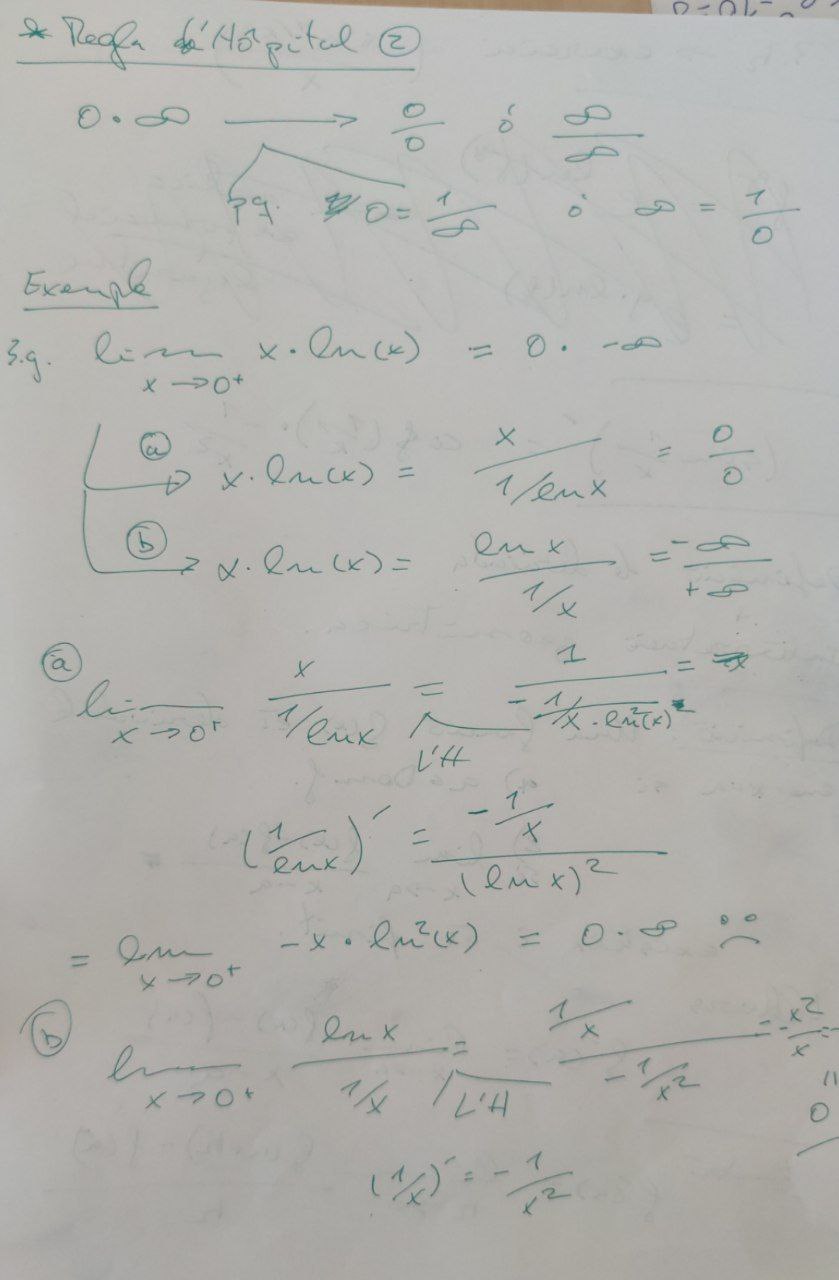 * Regla d'Hôpital ②
0 · ∞ → 0/0 ó ∞/∞
pq. 0 = 1/∞ ó ∞ = 1/0
Exemple
3.g. lim x→0⁺ x · ln(x) = 0 · -∞
ⓐ → x · ln(x) = x / (1/ln x) = 0/0
ⓑ → x · ln(x) = ln x / (1/x) = -∞/+∞
ⓐ lim x→0⁺ x / (1/ln x) = L'H 1 / (-1/(x · ln²(x))) =
(1/ln x)´ = (-1/x) / (ln x)²
= lim x→0⁺ -x · ln²(x) = 0 · ∞ :(
ⓑ lim x→0⁺ ln x / (1/x) = L'H (1/x) / (-1/x²) = -x²/x = 0
(1/x)´ = -1/x²